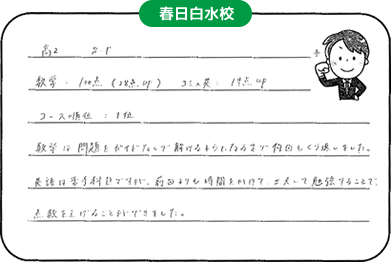 春日白水校
高2 S.F
数学:100点(28点up) コミュ英:19点up
コース順位:1位
数学は問題をかずだなしで解けるようになるまで何回もくり返しました。
英語は苦手科目ですが、前回よりも時間をかけて、工夫して勉強することで、
点数を上げることができました。